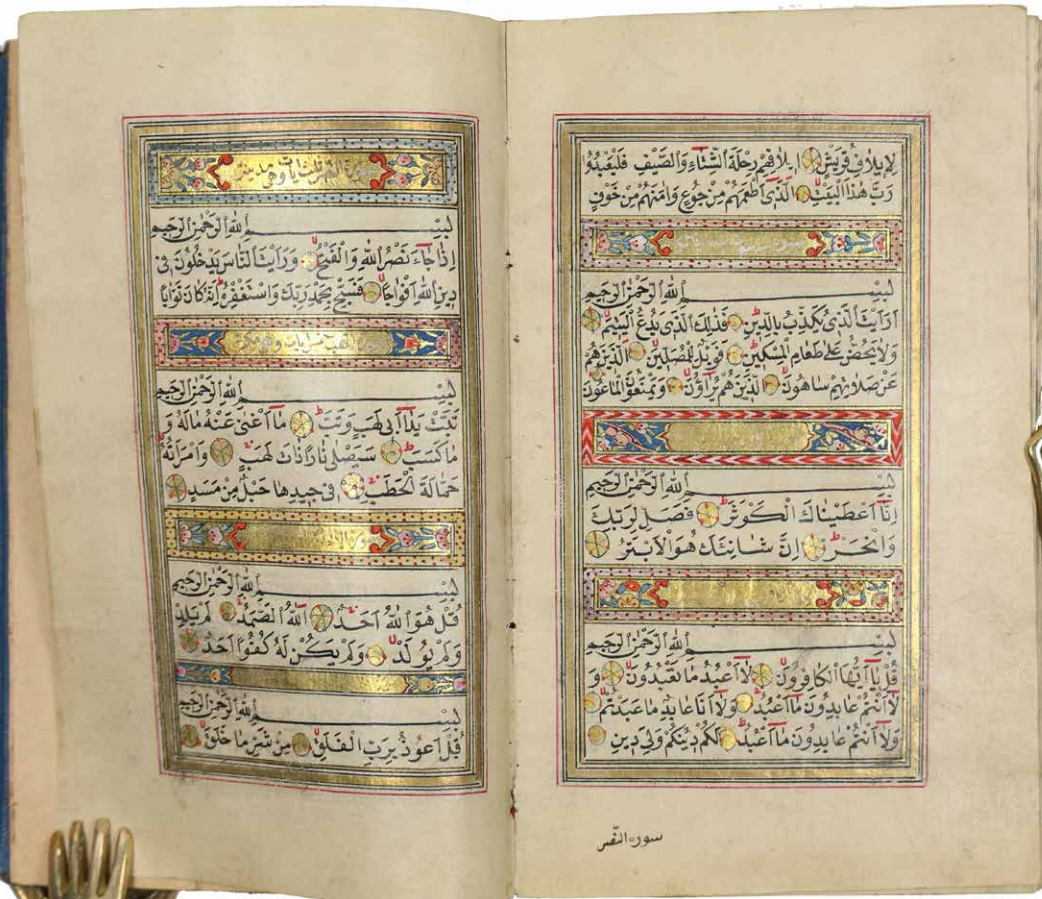 لِاِيلَافِ قُرَيْشٍ اِيلَافِهِمْ رِحْلَةَ الشِّتَاءِ وَالصَّيْفِ فَلْيَعْبُدُوا
رَبَّ هٰذَا الْبَيْتِ اَلَّذِى اَطْعَمَهُمْ مِنْ جُوعٍ وَاٰمَنَهُمْ مِنْ خَوْفٍ
بِسْمِ اللهِ الرَّحْمٰنِ الرَّحِيمِ
اَرَاَيْتَ الَّذِى يُكَذِّبُ بِالدِّينِ فَذٰلِكَ الَّذِى يَدُعُّ الْيَتِيمَ
وَلَا يَحُضُّ عَلٰى طَعَامِ الْمِسْكِينِ فَوَيْلٌ لِلْمُصَلِّينَ اَلَّذِينَ هُمْ
عَنْ صَلَاتِهِمْ سَاهُونَ اَلَّذِينَ هُمْ يُرَاؤُنَ وَيَمْنَعُونَ الْمَاعُونَ
بِسْمِ اللهِ الرَّحْمٰنِ الرَّحِيمِ
اِنَّا اَعْطَيْنَاكَ الْكَوْثَرَ فَصَلِّ لِرَبِّكَ
وَانْحَرْ اِنَّ شَانِئَكَ هُوَ الْاَبْتَرُ
بِسْمِ اللهِ الرَّحْمٰنِ الرَّحِيمِ
قُلْ يَا اَيُّهَا الْكَافِرُونَ لَا اَعْبُدُ مَا تَعْبُدُونَ وَ
لَا اَنْتُمْ عَابِدُونَ مَا اَعْبُدُ وَلَا اَنَا عَابِدٌ مَا عَبَدْتُمْ
وَلَا اَنْتُمْ عَابِدُونَ مَا اَعْبُدُ لَكُمْ دِينُكُمْ وَلِىَ دِينِ
سورة النّصر
سورة النصر ثلث ايات وهى مدنية
بِسْمِ اللهِ الرَّحْمٰنِ الرَّحِيمِ
اِذَا جَاءَ نَصْرُ اللهِ وَالْفَتْحُ وَرَاَيْتَ النَّاسَ يَدْخُلُونَ فِى
دِينِ اللهِ اَفْوَاجًا فَسَبِّحْ بِحَمْدِ رَبِّكَ وَاسْتَغْفِرْهُ اِنَّهُ كَانَ تَوَّابًا
خمس ايات وهى مكية
بِسْمِ اللهِ الرَّحْمٰنِ الرَّحِيمِ
تَبَّتْ يَدَا اَبِى لَهَبٍ وَتَبَّ مَا اَغْنٰى عَنْهُ مَالُهُ وَ
مَا كَسَبَ سَيَصْلٰى نَارًا ذَاتَ لَهَبٍ وَامْرَاَتُهُ
حَمَّالَةَ الْحَطَبِ فِى جِيدِهَا حَبْلٌ مِنْ مَسَدٍ
بِسْمِ اللهِ الرَّحْمٰنِ الرَّحِيمِ
قُلْ هُوَ اللهُ اَحَدٌ اَللهُ الصَّمَدُ لَمْ يَلِدْ
وَلَمْ يُولَدْ وَلَمْ يَكُنْ لَهُ كُفُوًا اَحَدٌ
بِسْمِ اللهِ الرَّحْمٰنِ الرَّحِيمِ
قُلْ اَعُوذُ بِرَبِّ الْفَلَقِ مِنْ شَرِّ مَا خَلَقَ